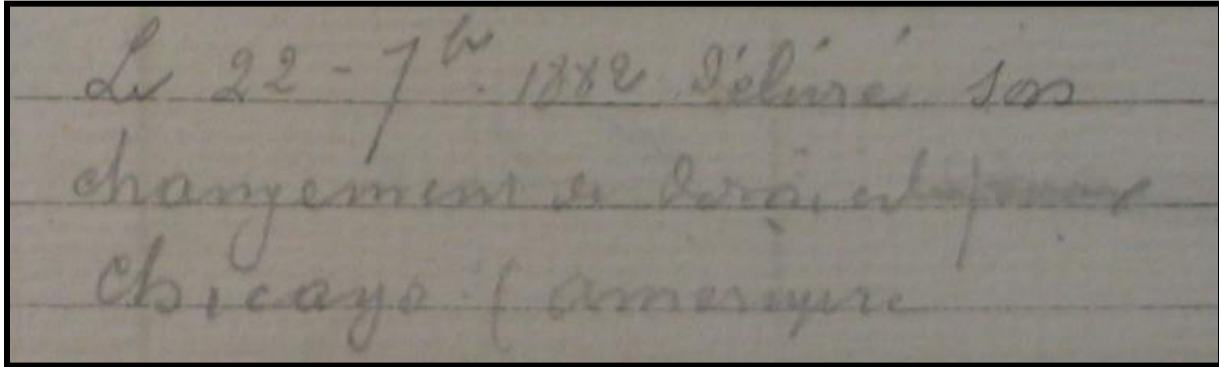 Le 22 - 7bre 1882 Délivré son
changement de domicile pour
Chicago (amerique